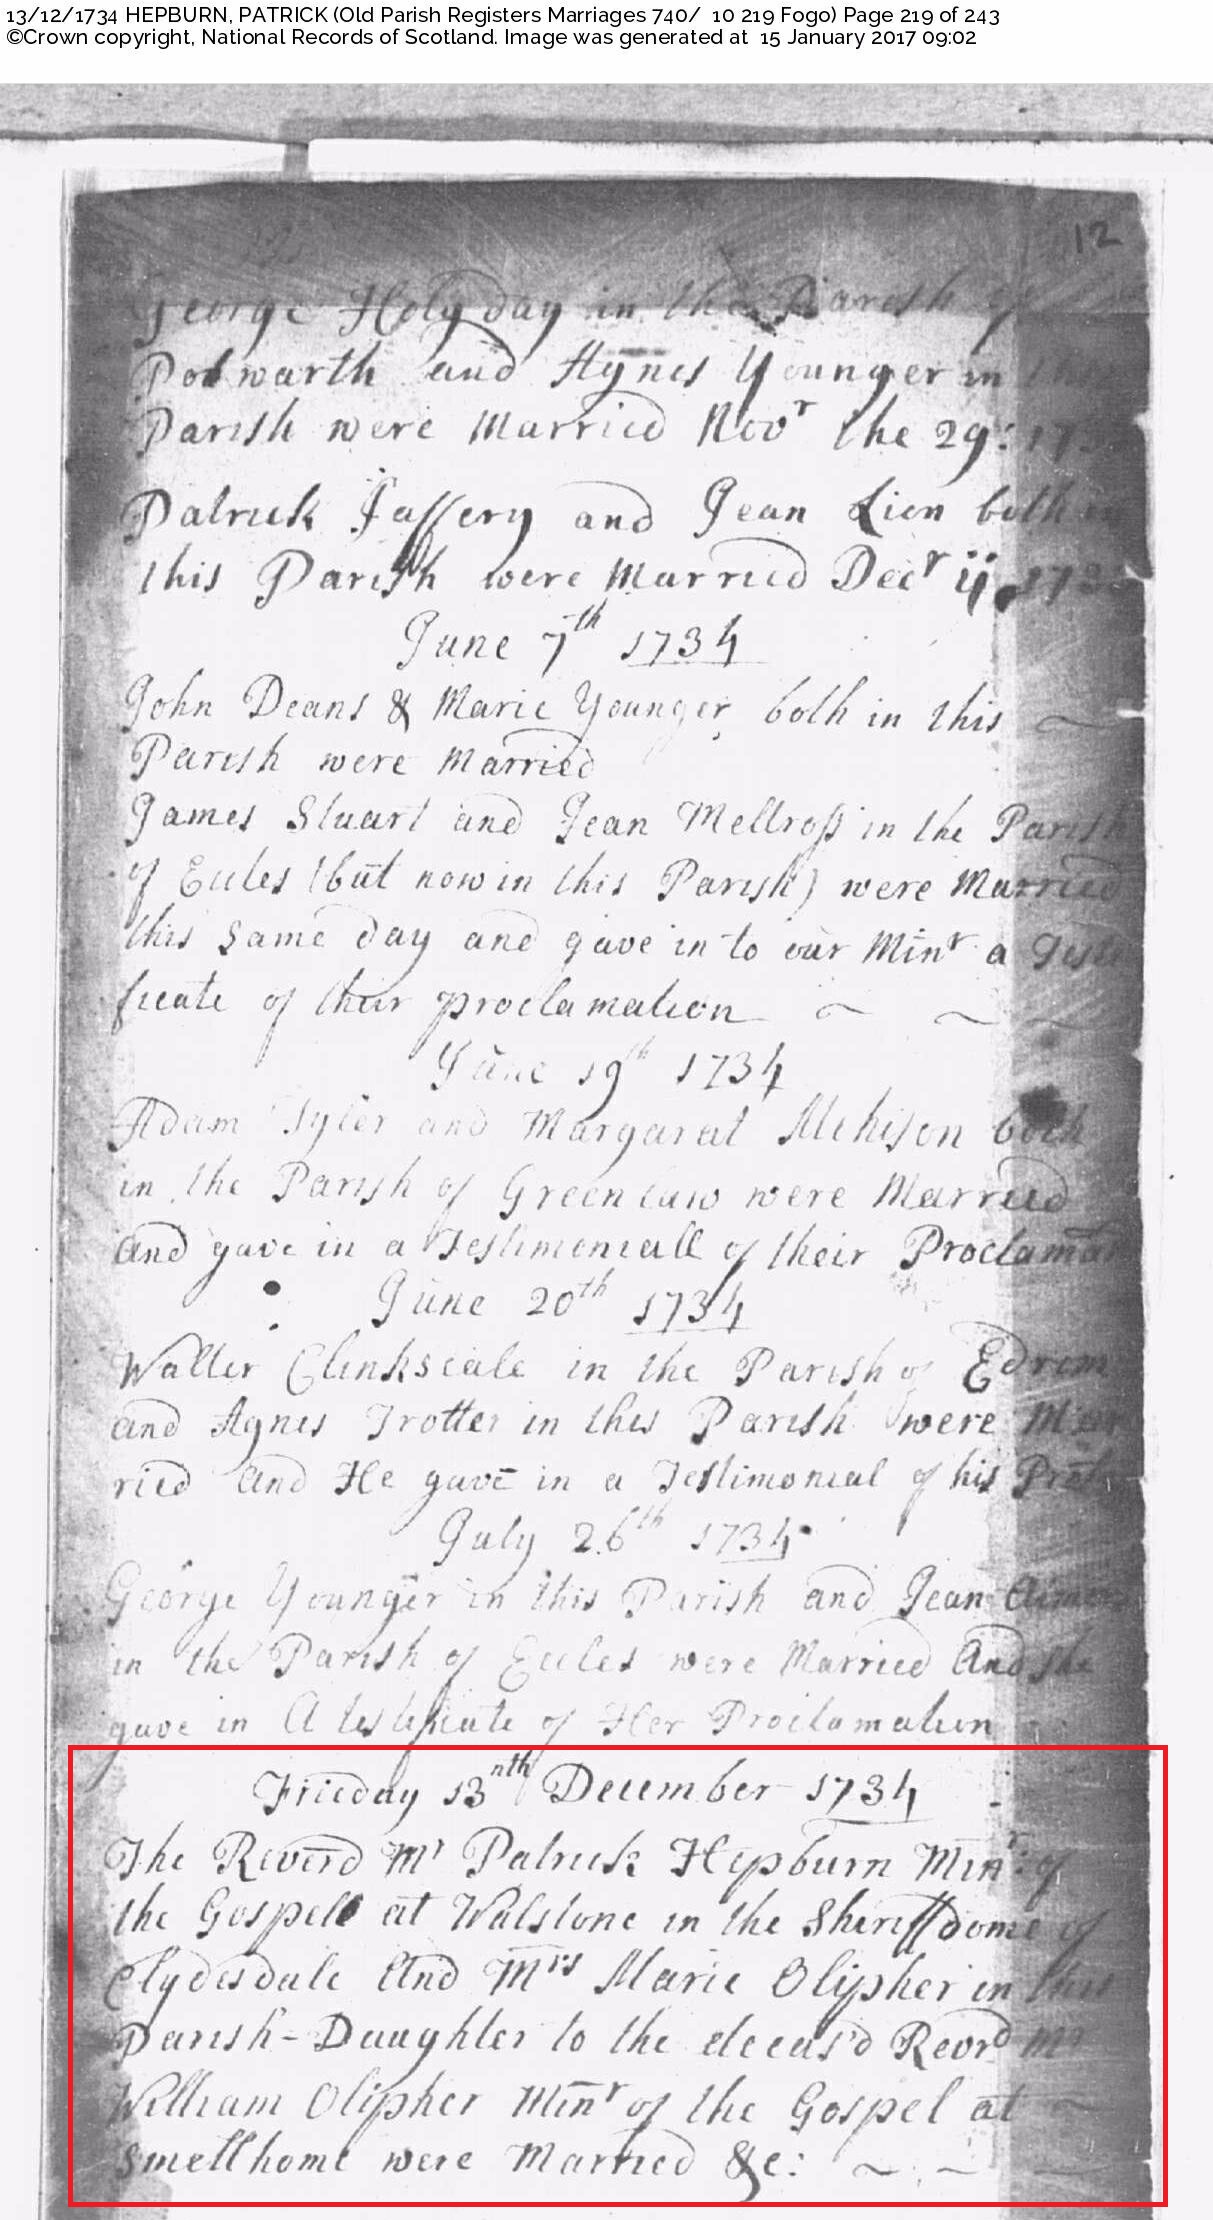 13/12/1734 HEPBURN, PATRICK (Old Parish Registers Marriages 740/ 10 219 Fogo) Page 219 of 243
©Crown copyright, National Records of Scotland. Image was generated at 15 January 2017 09:02
12
George Holyday in the Parish of
Polwarth and Agnes Younger in
Parish were Married Novr the 29: 173
Patrick Jaffery and Jean Lien both in
this Parish were Married Decr ij 173
June 7th 1734
John Deans & Marie Younger both in this
Parish were Married
James Stuart and Jean Mellross in the Parish
of Eccles (but now in this Parish) were Married
this same day and gave in to our Minr a Testi
ficate of their proclamation
June 19th 1734
Adam Tyler and Margarat both
in the Parish of Greenlaw were Married
And gave in a Testimoniall of their Proclama
June 20th 1734
Walter Clinkscale in the Parish of Edrom
and Agnes Trotter in this Parish were Mar
ried And He gave in a Testimonial of his
July 26th 1734
George Younger in this Parish and Jean
in the Parish of Eccles were Married And she
gave in A testificate of Her Proclamation
Frieday 13nth December 1734
The Reverd Mr Patrick Hepburn Minr: of
the Gospell at Walstone in the Sheriffdome of
Clydesdale And Mrs Marie Olipher in this
Parish - Daughter to the deceas'd Revrd Mr
William Olipher Minr of the Gospel at
Smellhome were Married &c: